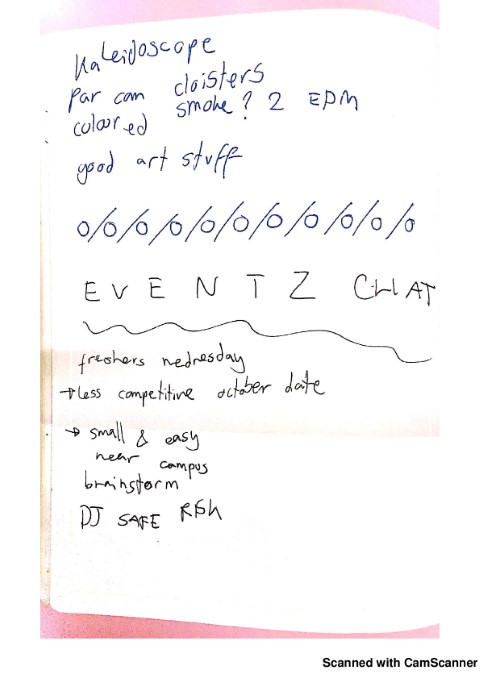 Kaleidoscope
par can cloisters
coloured smoke? 2 EPM
good art stuff
o/o/o/o/o/o/o/o/o/o/o
EVENTZ CHAT
freshers wednesday
→ less competitive october date
→ small & easy
near campus
brainstorm
DJ SAFE
Scanned with CamScanner